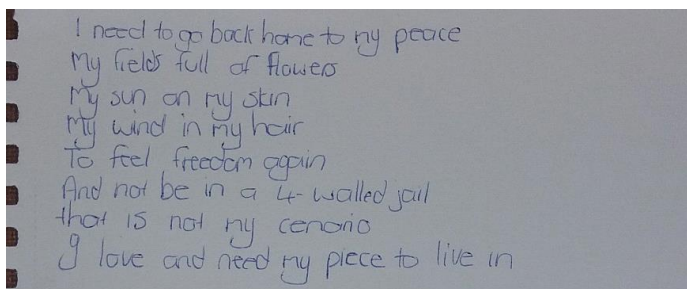 I need to go back home to my peace
My fields full of flowers
My sun on my skin
My wind in my hair
To feel freedom again
And not be in a 4-walled jail
that is not my cenario
I love and need my piece to live in